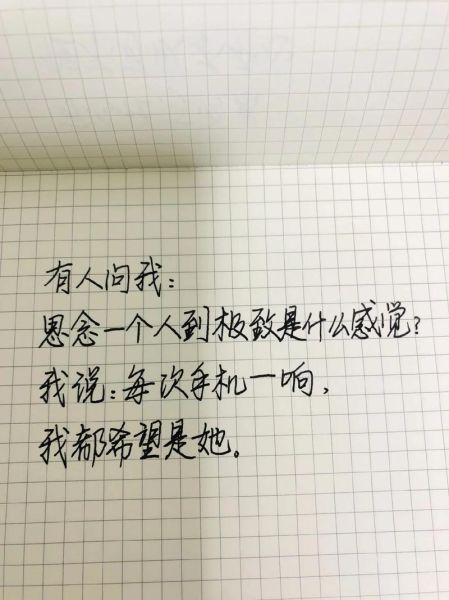 有人问我：
思念一个人到极致是什么感觉？
我说：每次手机一响，
我都希望是她。